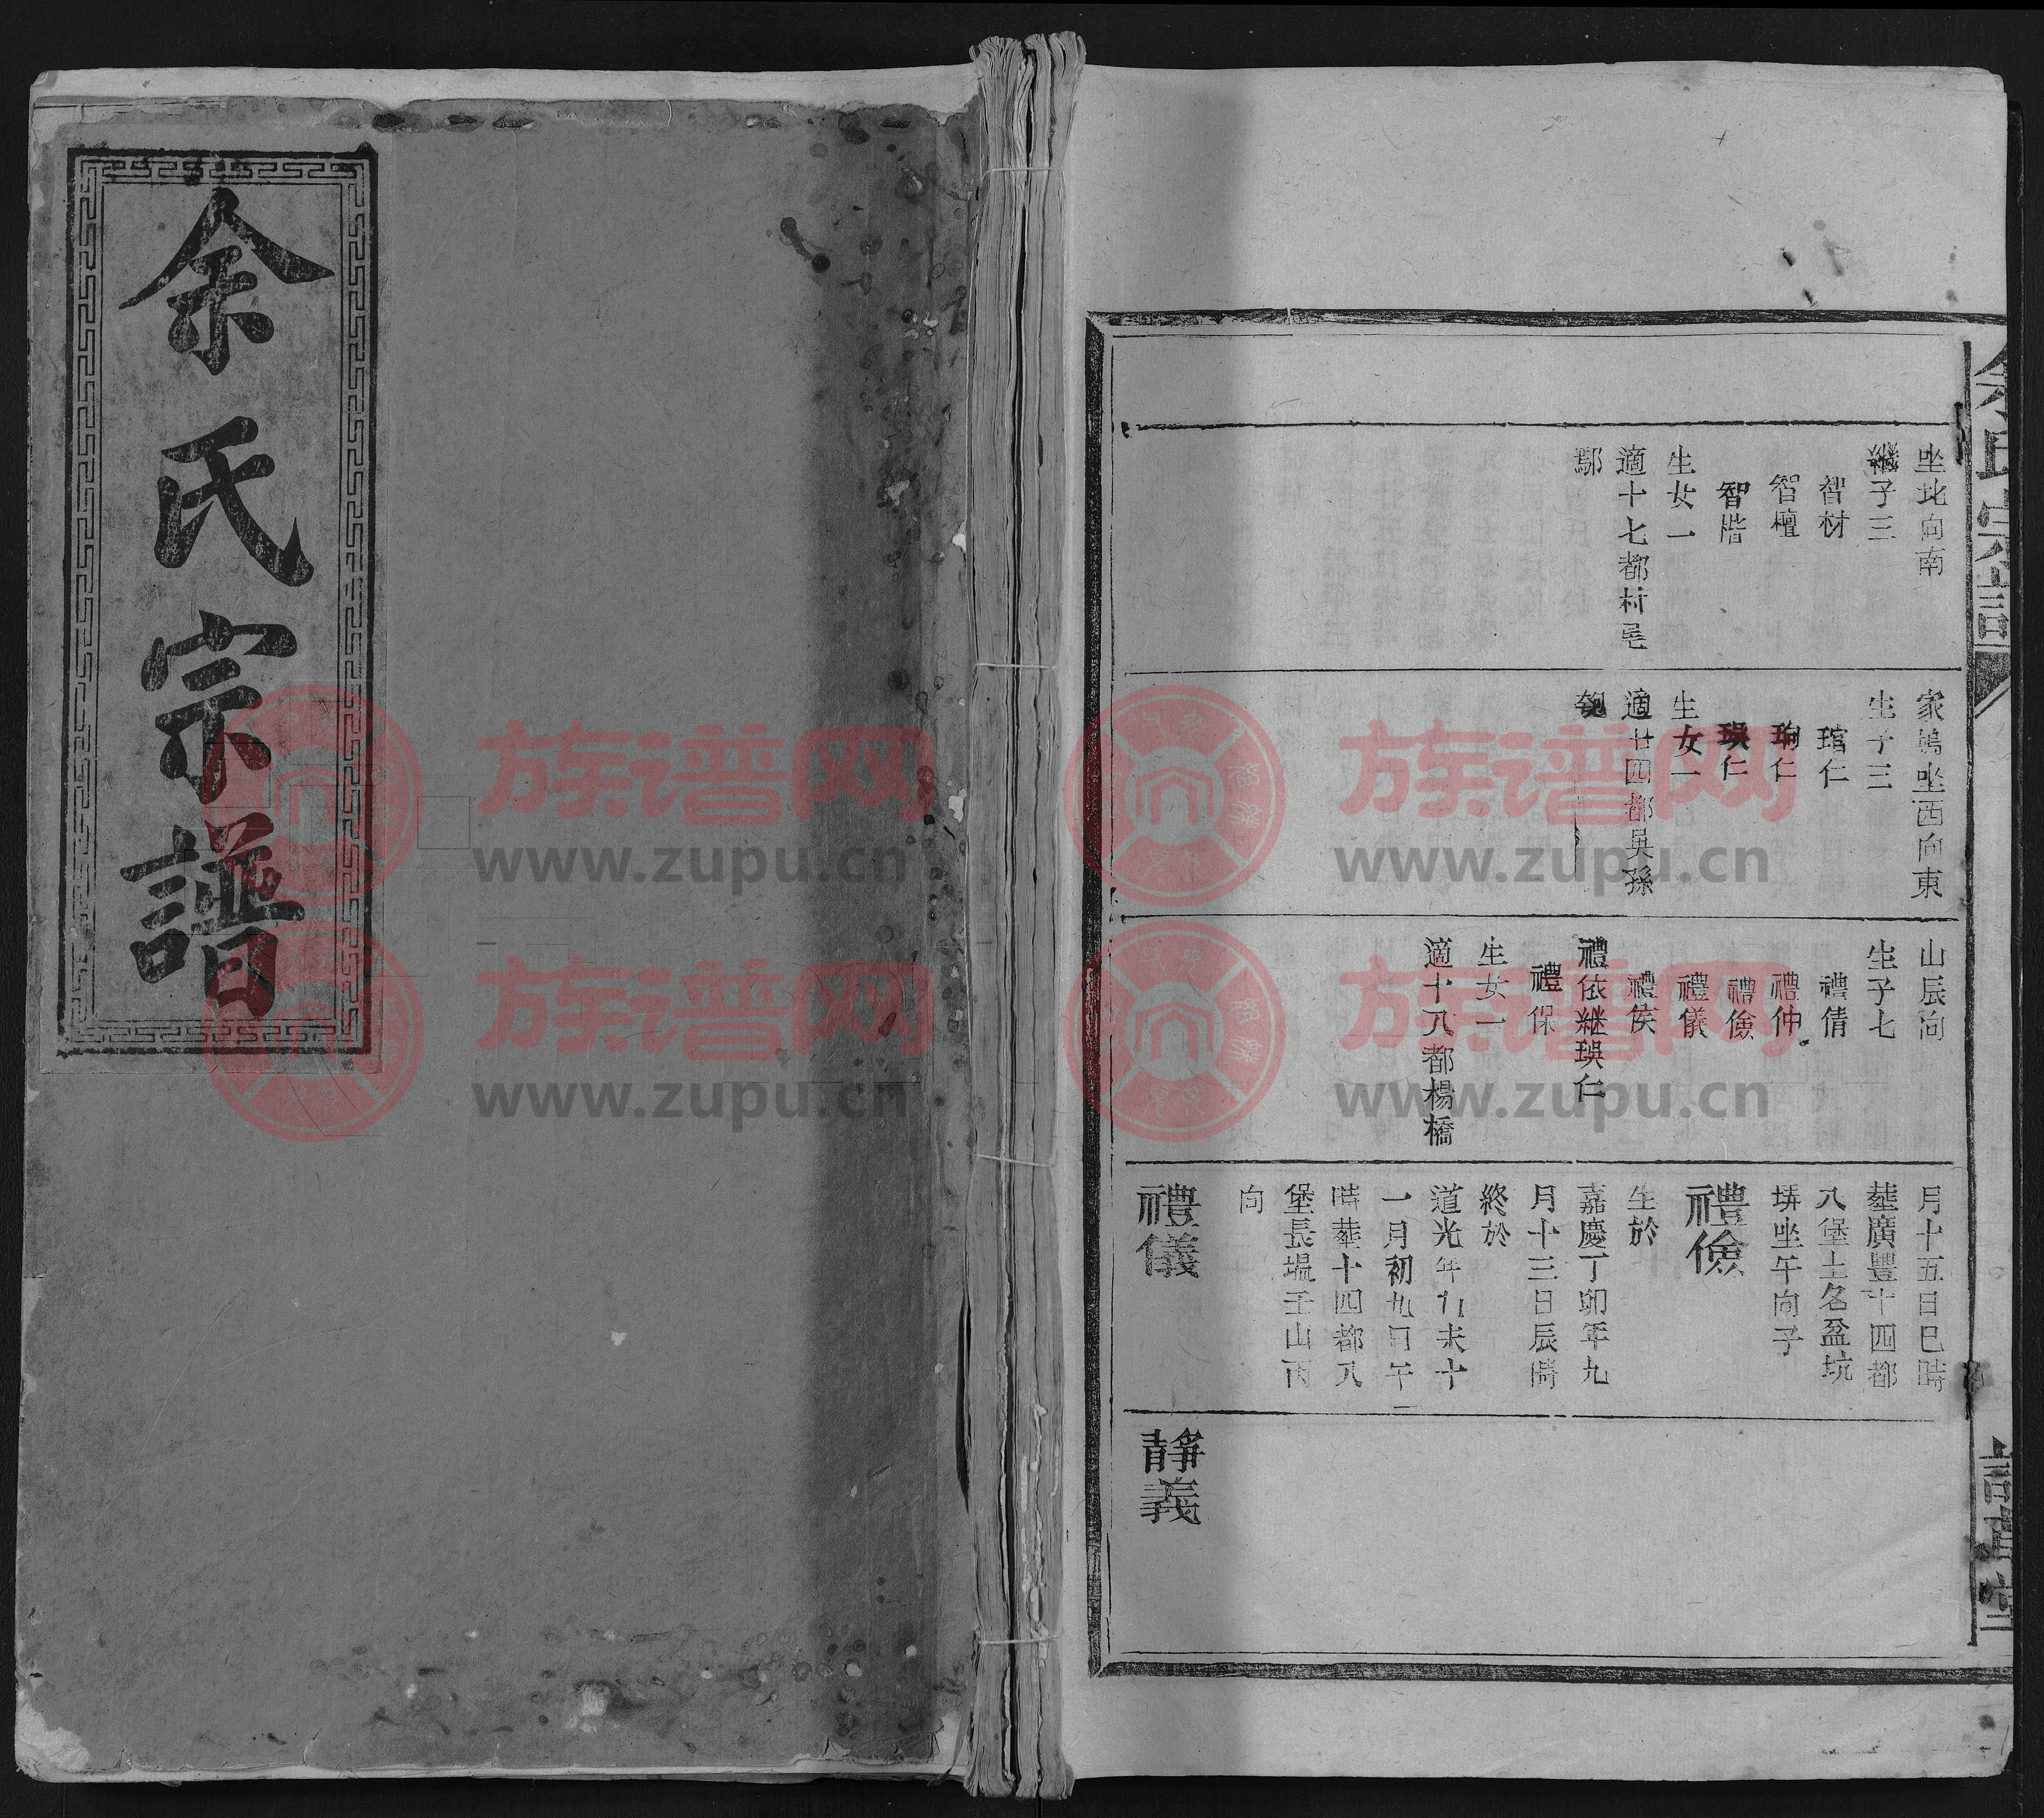 余氏宗譜
坐北向南
繼子三
智材
智檀
智楷
生女一
適十七都村尾
鄢
家塢坐西向東
生子三
琯仁
珣仁
珙仁
生女一
適廿四都吳孫
山辰向
生子七
禮倩
禮仲
禮儉
禮儀
禮侯
禮依継珙仁
禮保
生女一
適十八都楊橋
月十五日巳時
塟廣豐十四都
八堡土名盆坑
坐午向子
禮儉
生於
嘉慶丁卯年九
月十三日辰時
終於
道光年未十
一月初九日午
時塟十四都八
堡長塭壬山丙
向
禮儀
靜義
族谱网
www.zupu.cn
族谱网
www.zupu.cn
族谱网
www.zupu.cn
族谱网
www.zupu.cn